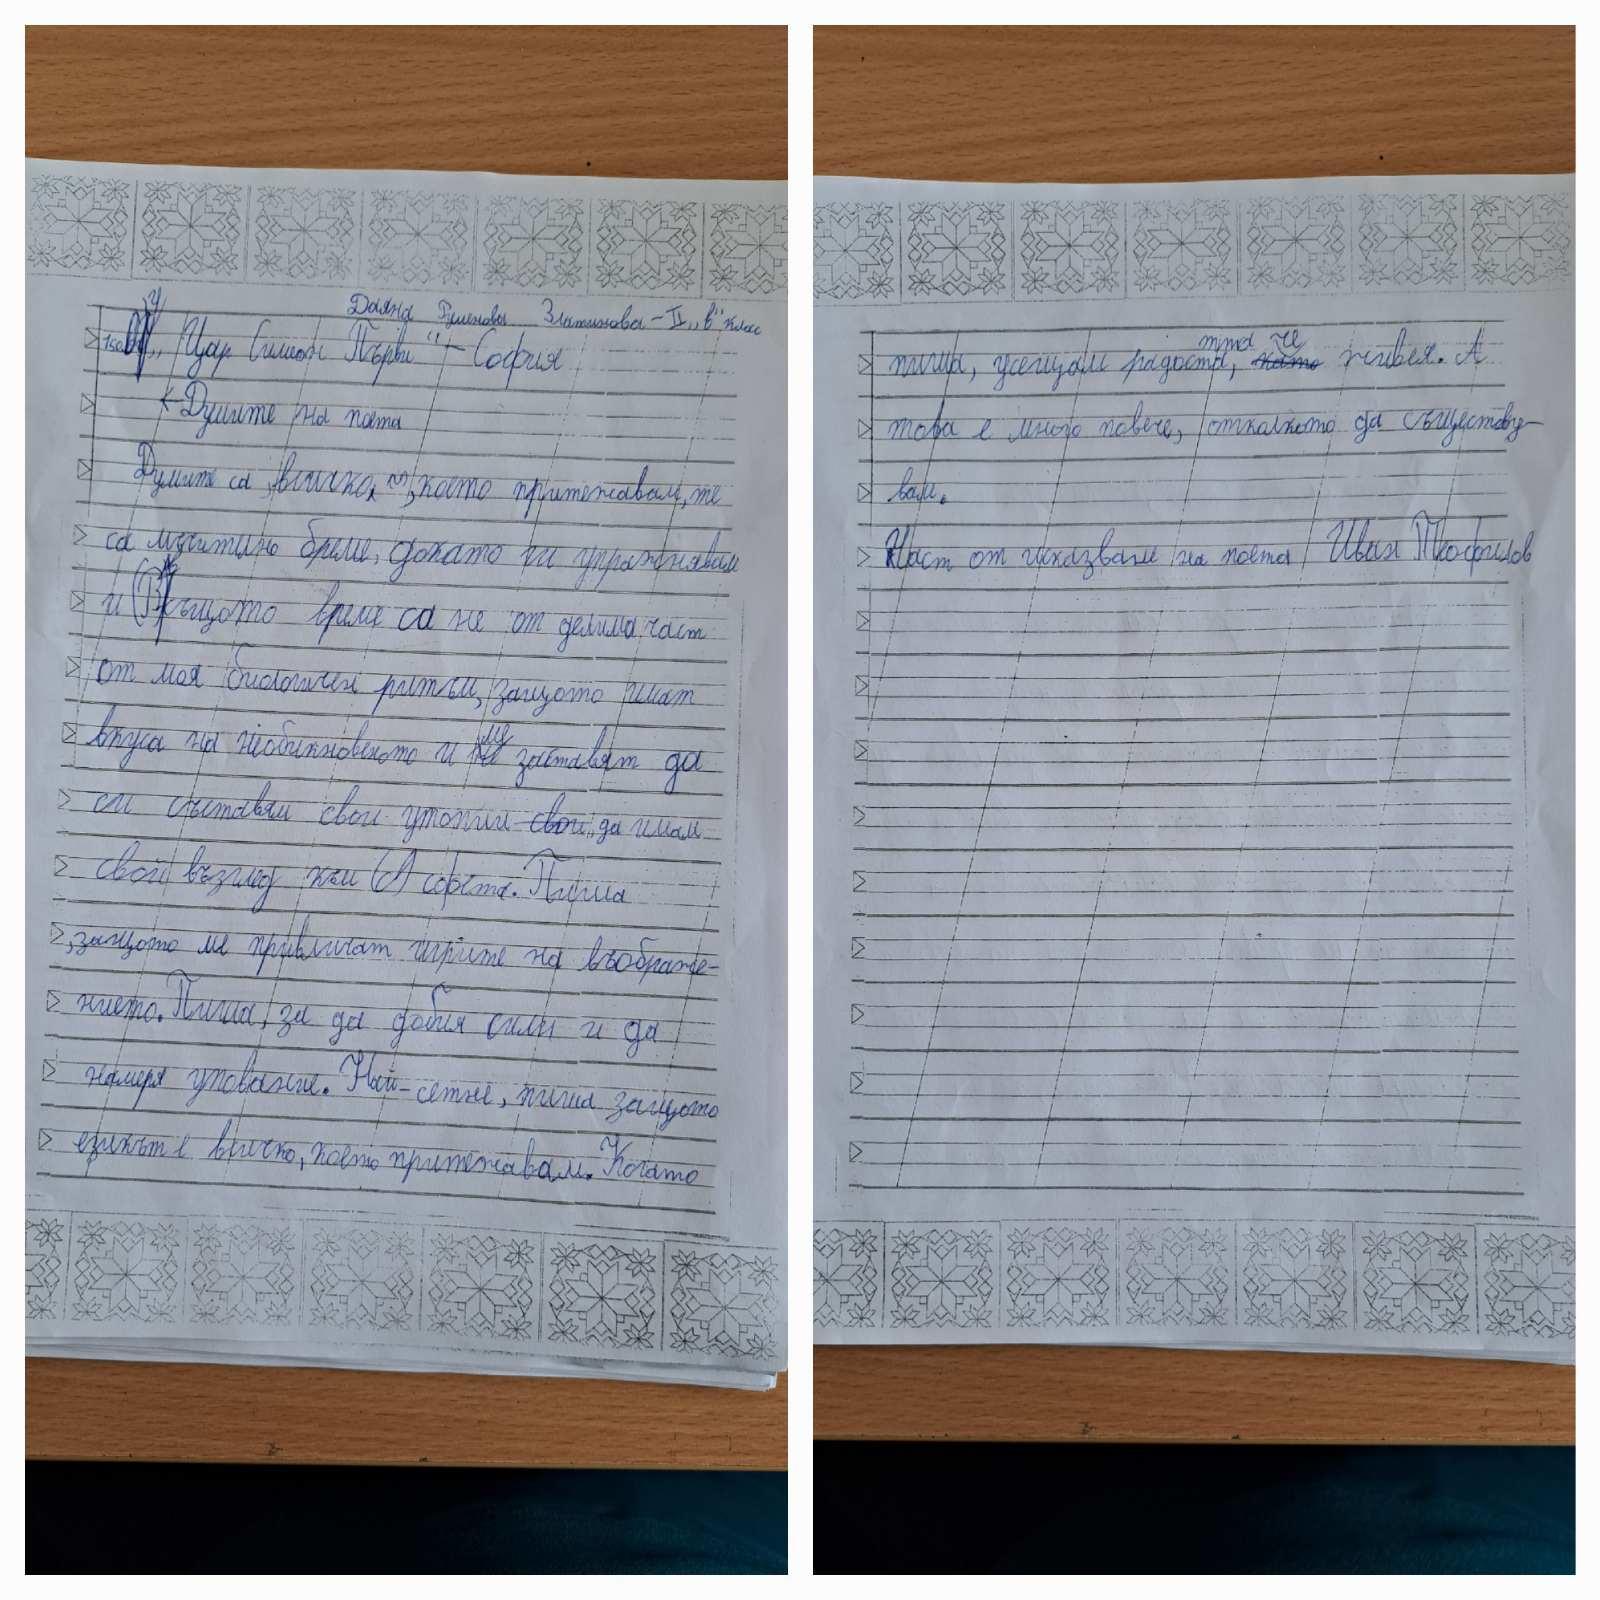 Даяна Руменова Златинова - II "в" клас
150 ОУ "Цар Симеон Първи" - София
Думите на поета
Думите са всичко, което притежавам, те
са мъчитилно бреме, докато ги упражнявам
и в същото време са не от делима част
от моя биологичен ритъм, защото имат
вкуса на необикновеното и ме заставят да
си съставям свои утопии свои, да имам
свой възглед към (с) софета. Пиша
, защото ме привличат игрите на въображе-
нието. Пиша, за да добия сили и да
намеря упование. Най-сетне, пиша защото
езикът е всичко, което притежавам. Когато
пиша, усещам радостта, че живея. А
това е много повече, отколкото да съществу-
вам.
Част от изказване на поета Иван Теофилов